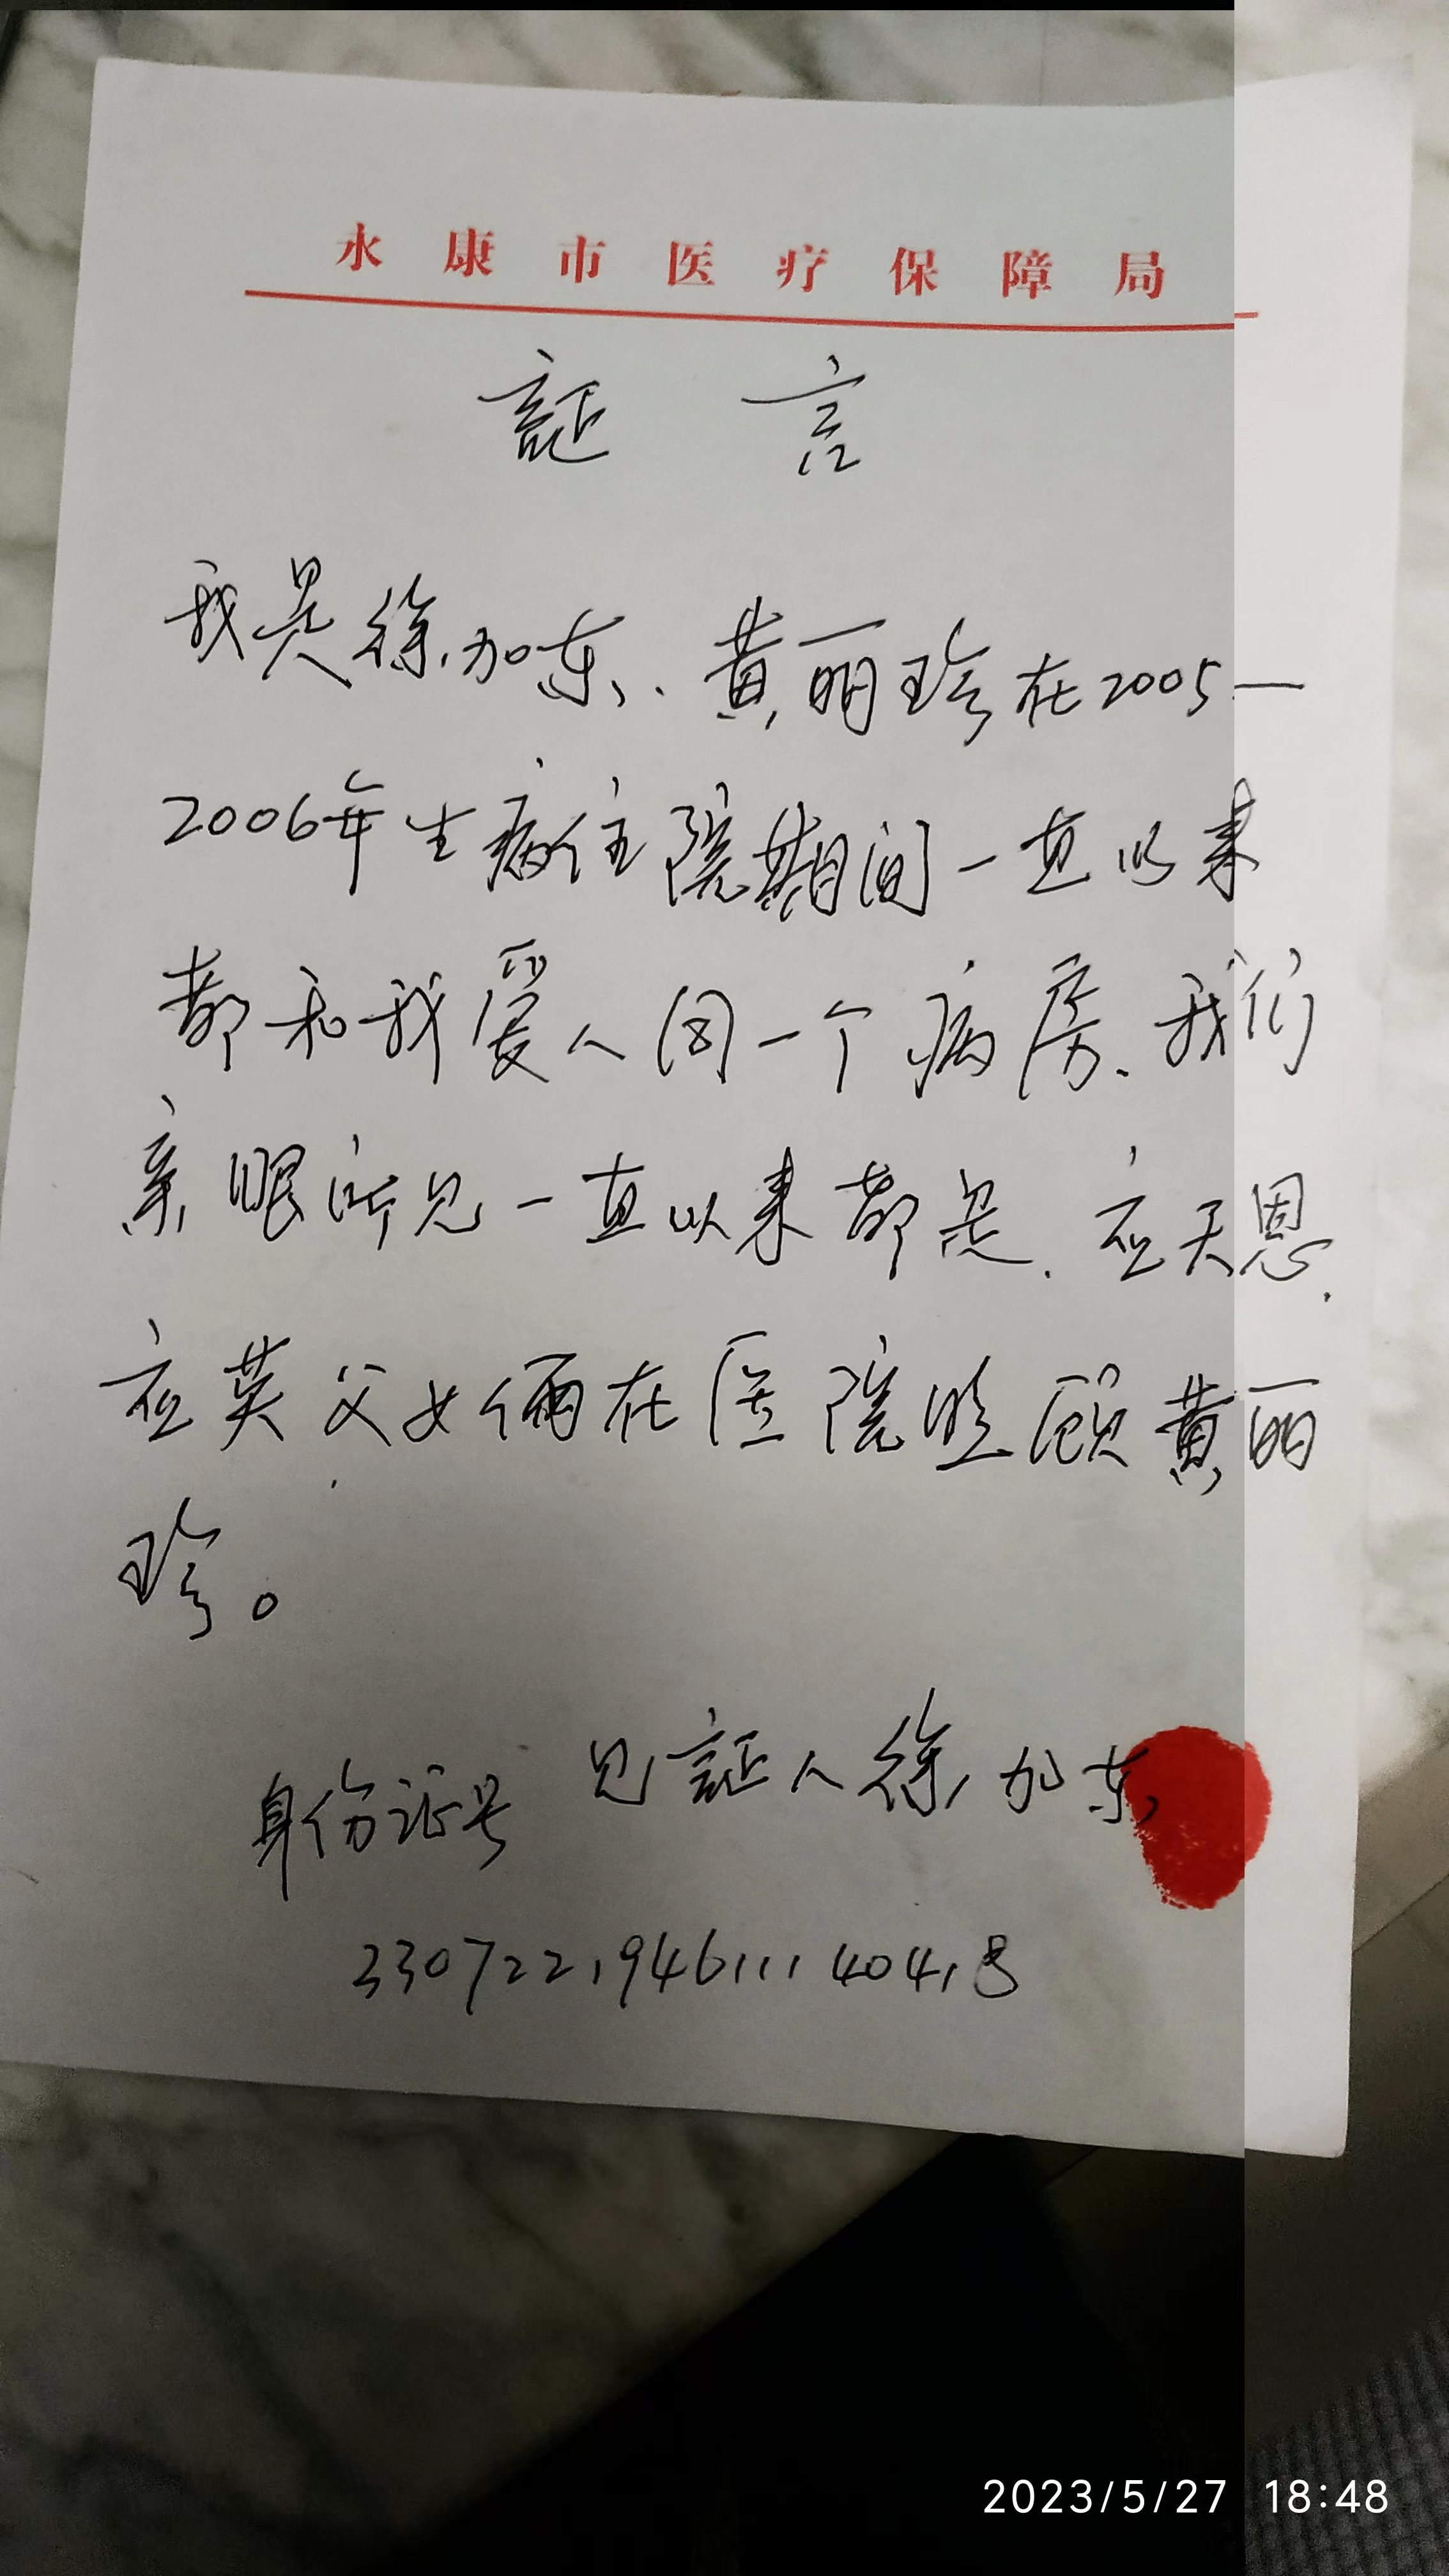 永康市医疗保障局
証 言
我是徐加东、黄丽珍在2005—
2006年生病住院期间一直以来
都和我爱人同一个病房、我们
亲眼所见一直以来都是、应天恩、
应英父女俩在医院照顾黄丽
珍。
见証人徐加东
身份证号
330722194611140418
2023/5/27 18:48